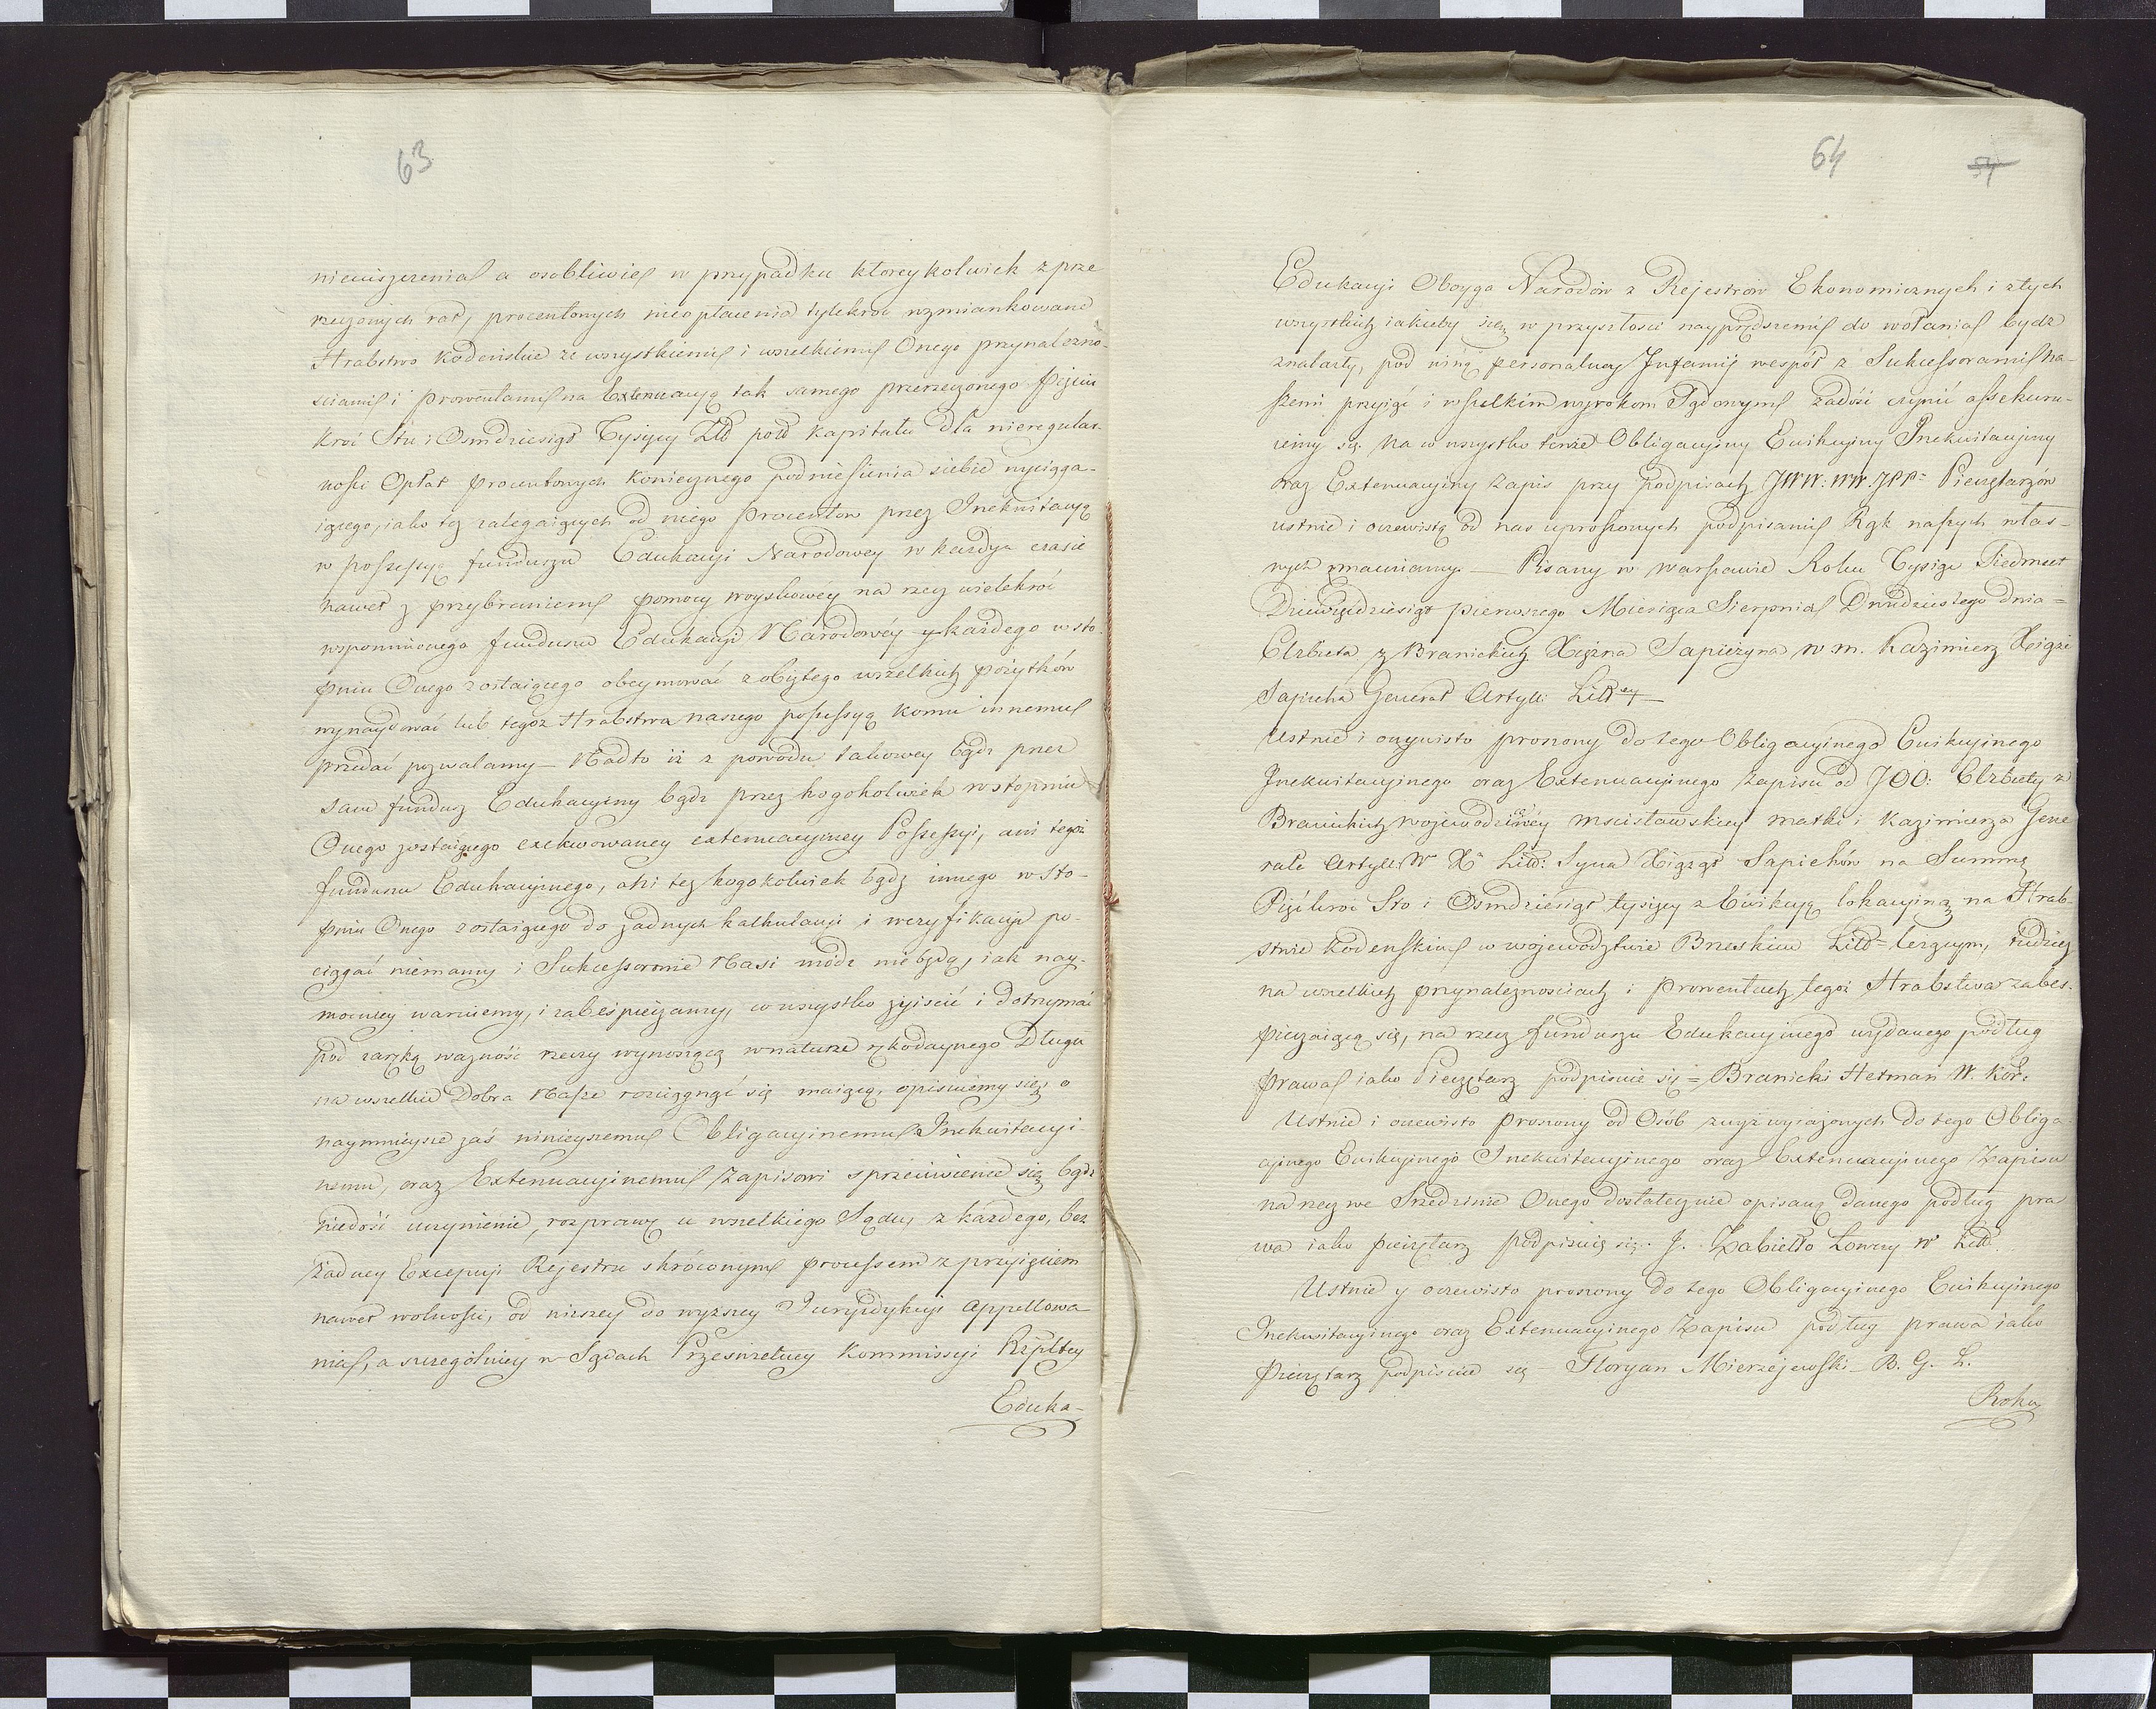 63
nieuiszczenia a osobliwie w przypadku ktoreykolwiek z prze
rzeczonych rat, procentowych nieopłacenia tylekroć wzmiankowane
Hrabstwo Kodeńskie ze wszystkiemi i wszelkiemi Onego przynalezno-
sciami i prowentami na Extenuacyą tak samego przerzeczonego Pięciu
kroć Stu i Osmdziesiąt Tysięcy Zł pol kapitału dla nieregular-
nosci Opłat procentowych koniecznego podniesienia siebie wyciąga-
iącego, iako też zalegaiących od niego procentow przez Inekwitacyą
w possessyą funduszu Edukacyi Narodowey w każdym czasie
nawet z przybraniem pomocy woyskowey na rzecz wielekroć
wspomnionego funduszu Edukacyi Narodowéy y każdego w sto-
pniu Onego zostaiącego obeymować z obiętego wszelkich pożytków
wynaydować lub tegoż Hrabstwa naszego possessyą komu innemu
przedać pozwalamy – Nadto iż z powodu takowey bądz przez
sam fundusz Edukacyiny bądz przez kogokolwiek w stopniu
Onego zostaiącego exekwowaney extenuacyiney Possessyi, ani tegoż
funduszu Edukacyinego, ani tez kogokolwiek bądz innego w sto-
pniu Onego zostaiącego do żadnych kalkulacyi i weryfikacyi po-
ciągać niemamy i Sukcessorowie Nasi módz nie będą, iak nay-
mocniey waruiemy, i zabespieczamy, co wszystko zyiscić i dotrzymać
pod zaręką ważność rzeczy wynoszącą w naturze Długu
na wszelkie Dobra Nasze rozciągnąć się maiącą, opisuiemy się, o
naymnieysze zaś ninieyszemu Obligacyinemu Inekwitacyi-
nemu, oraz Extenuacyinemu Zapisowi sprzeciwienie się bądz
niedość uczynienie, rozprawę u wszelkiego Sądu, z każdego, bez
żadney Excepcyi Rejestru skróconym processem z przyięciem
nawet wolności, od niższey do wyższey Juryzdykcyi appellowa-
nia, a szczególniey w Sądach Prześwietney Kommissyi Rzpltey
Eduka-
64
54
Edukacyi Oboyga Narodów z Rejestrów Ekonomicznych i z tych
wszystkich iakieby się w przyszłosci nayprędszemi do wołania bydz
znalazły, pod winą personalney Infamii wespół z Sukcessorami na-
szemi przyiąć i wszelkim wyrokom Sądowym zadość czynić assekuru-
iemy się. Na co wszystko tenże Obligacyiny Ewikcyiny Inekwitacyiny
oraz Extenuacyiny Zapis przy podpisach JWW: WW. JPP= Pieczętarzów
ustnie i oczewistą od nas uproszonych podpisami Rąk naszych włas-
nych zmacniamy. – Pisany w Warszawie Roku Tysiąc Siedmset
Dziewiędziesiąt pierwszego Miesiąca Sierpnia Dwudziestego dnia =
Elzbieta z Branickich Xiężna Sapieżyna W. M. Kazimierz Xiąże
Sapieha Generał Artyll: Littey –
Ustnie i oczywisto proszony do tego Obligacyinego Ewikcyinego
Inekwitacyinego oraz Extenuacyinego Zapisu od JOO: Elzbiety z
Branickich Wojewodziney Mscisławskiey matki i Kazimierza Gene
rała Artyll: W X Litt: Syna Xiążąt Sapiehów na Summę
Pięćkroć Sto i Osmdziesiąt tysięcy z Ewikcyą lokacyiną na Hrab-
stwie Kodenskim w Województwie Brzeskim Litt= leżącym, tudzież
na wszelkich przynależnościach i prowentach tegoż Hrabstwa zabes-
pieczaiącą się, na rzecz funduszu Edukacyinego wydanego podług
prawa iako Pieczętarz podpisuie się = Branicki Hetman W. Kor:
Ustnie i oczewisto proszony od Osób zwyż wyrażonych do tego Obliga-
cyinego Ewikcyinego Inekwitacyinego oraz Extenuacyinego Zapisu
na rzecz we Srzedzinie Onego dostatecznie opisaną danego podług pra
wa iako pieczętarz podpisuię się. J. Zabiełło Łowczy W Litt
Ustnie y oczewisto proszony do tego Obligacyinego Ewikcyinego
Inekwitacyinego oraz Extenuacyinego Zapisu podług prawa iako
Pieczętarz podpisuie się – Floryan Mierzejewski – R. G. L.
Roku